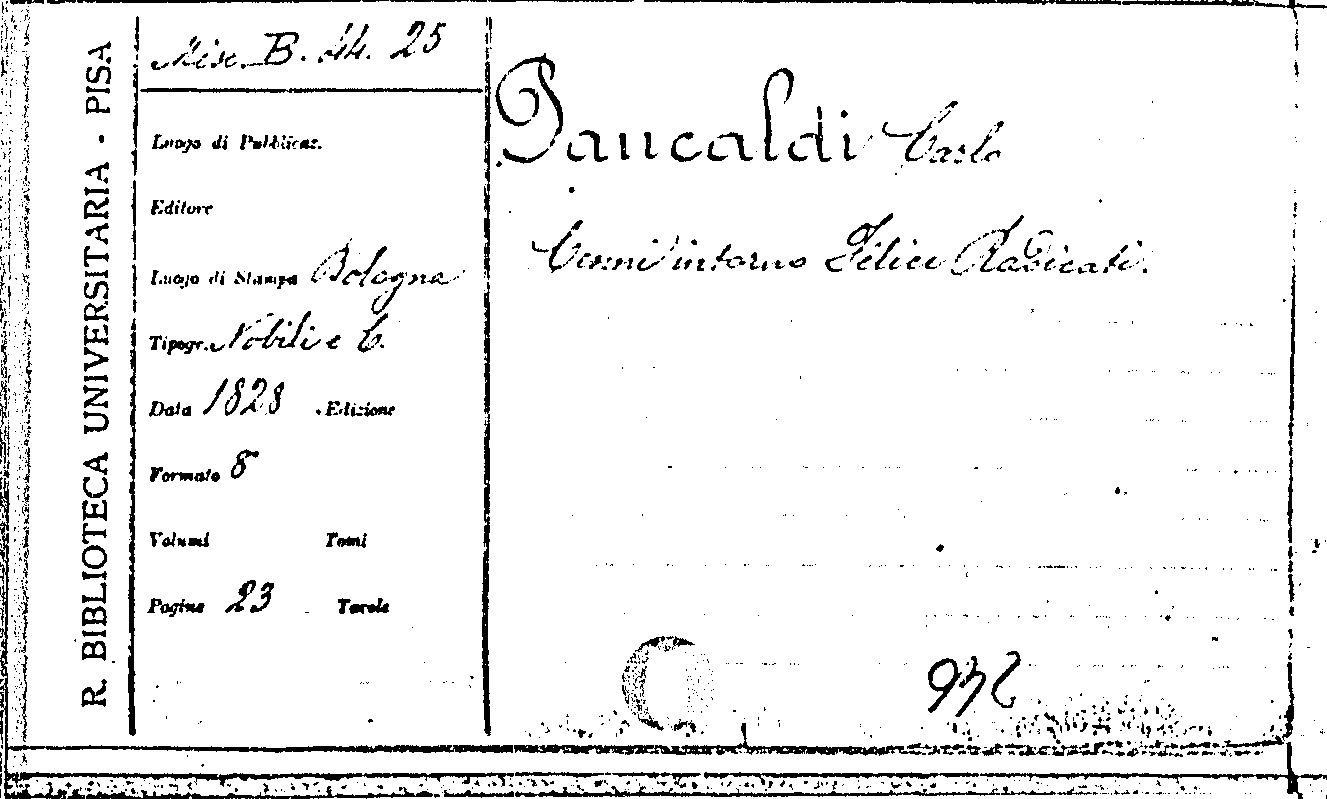 R. BIBLIOTECA UNIVERSITARIA - PISA
Misc. B. 44. 25
Luogo di Pubblicaz.
Editore
Luogo di Stampa Bologna
Tipogr. Nobili e C.
Data 1828 Edizione
Formato 8
Volumi Tomi
Pagine 23 Tavole
Pancaldi Carlo
Cenni intorno Felice Radicati.
246